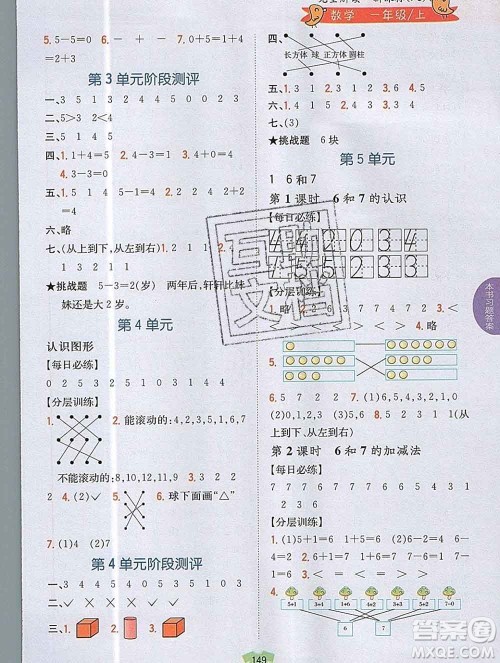 数学 一年级/上
5. 5-5=0 - + - - =
6. 2 1 3 4
第3单元阶段测评
一、3 5 1 3 2 4 4 5 5 5 5
二、5>3 2<4
四、1. 1+4=5 2. 4-3=1 3. 2+2=4
4. 3-3=0
五、1. 5 1 2 4 5-1=4 2. 略
六、略
七、(从上到下,从左到右) 1 2 1 1 0
1 3 2 1 1
★挑战题 5-3=2(岁) 两年后,轩轩比妹
妹还是大2岁。
第4单元
认识图形
【每日必练】
0 2 5 3 2 5 1 0 4 1 5 3
【分层训练】
1.
2. 能滚动的:4,2,3,5,1,6,7
不能滚动的:8,10,12,11,9 3. 1 2 2 4
4. (2)✓ 5. 6. 球下面画“△”
7. (1)4 (2)2
第4单元阶段测评
一、3 4 5 4 0 5 5 4 3 5 1 0 3
二、✓ × × × ×
三、1. 2. 3. 4.
四、
长方体 球 正方体 圆柱
五、1. 2 1 3 2 2. 5 1 3 1
六、1. 3 2. 8 6 3. 9
七、(3)
★挑战题 6块
第5单元
1 6和7
第1课时 6和7的认识
【每日必练】
4 4 2 0 3 4
4 5 5 2 3 3
【分层训练】
1. 略 2. 6 6 7 3. > < = > < < 4. 略
5.
6. 5 7 2 7. (1)6,5,4,3,2,1,0
(2)0,1,2,3,5,6,7 8. (1)5 4 2 (2)4 3(从
上到下,从左到右)
第2课时 6和7的加减法
【每日必练】
7 7 7 6 7 6 7 7 6 7 7 6
【分层训练】
1. (1)5+1=6 1+5=6 (2)6-2=4 6-
4=2 2. 6 1 6 4 3. < > = > < =
4.
5+1 3+4 1+6 4+2 5+2 7-0
6 7
本书习题答案
149
答案圈
MXQE.COM